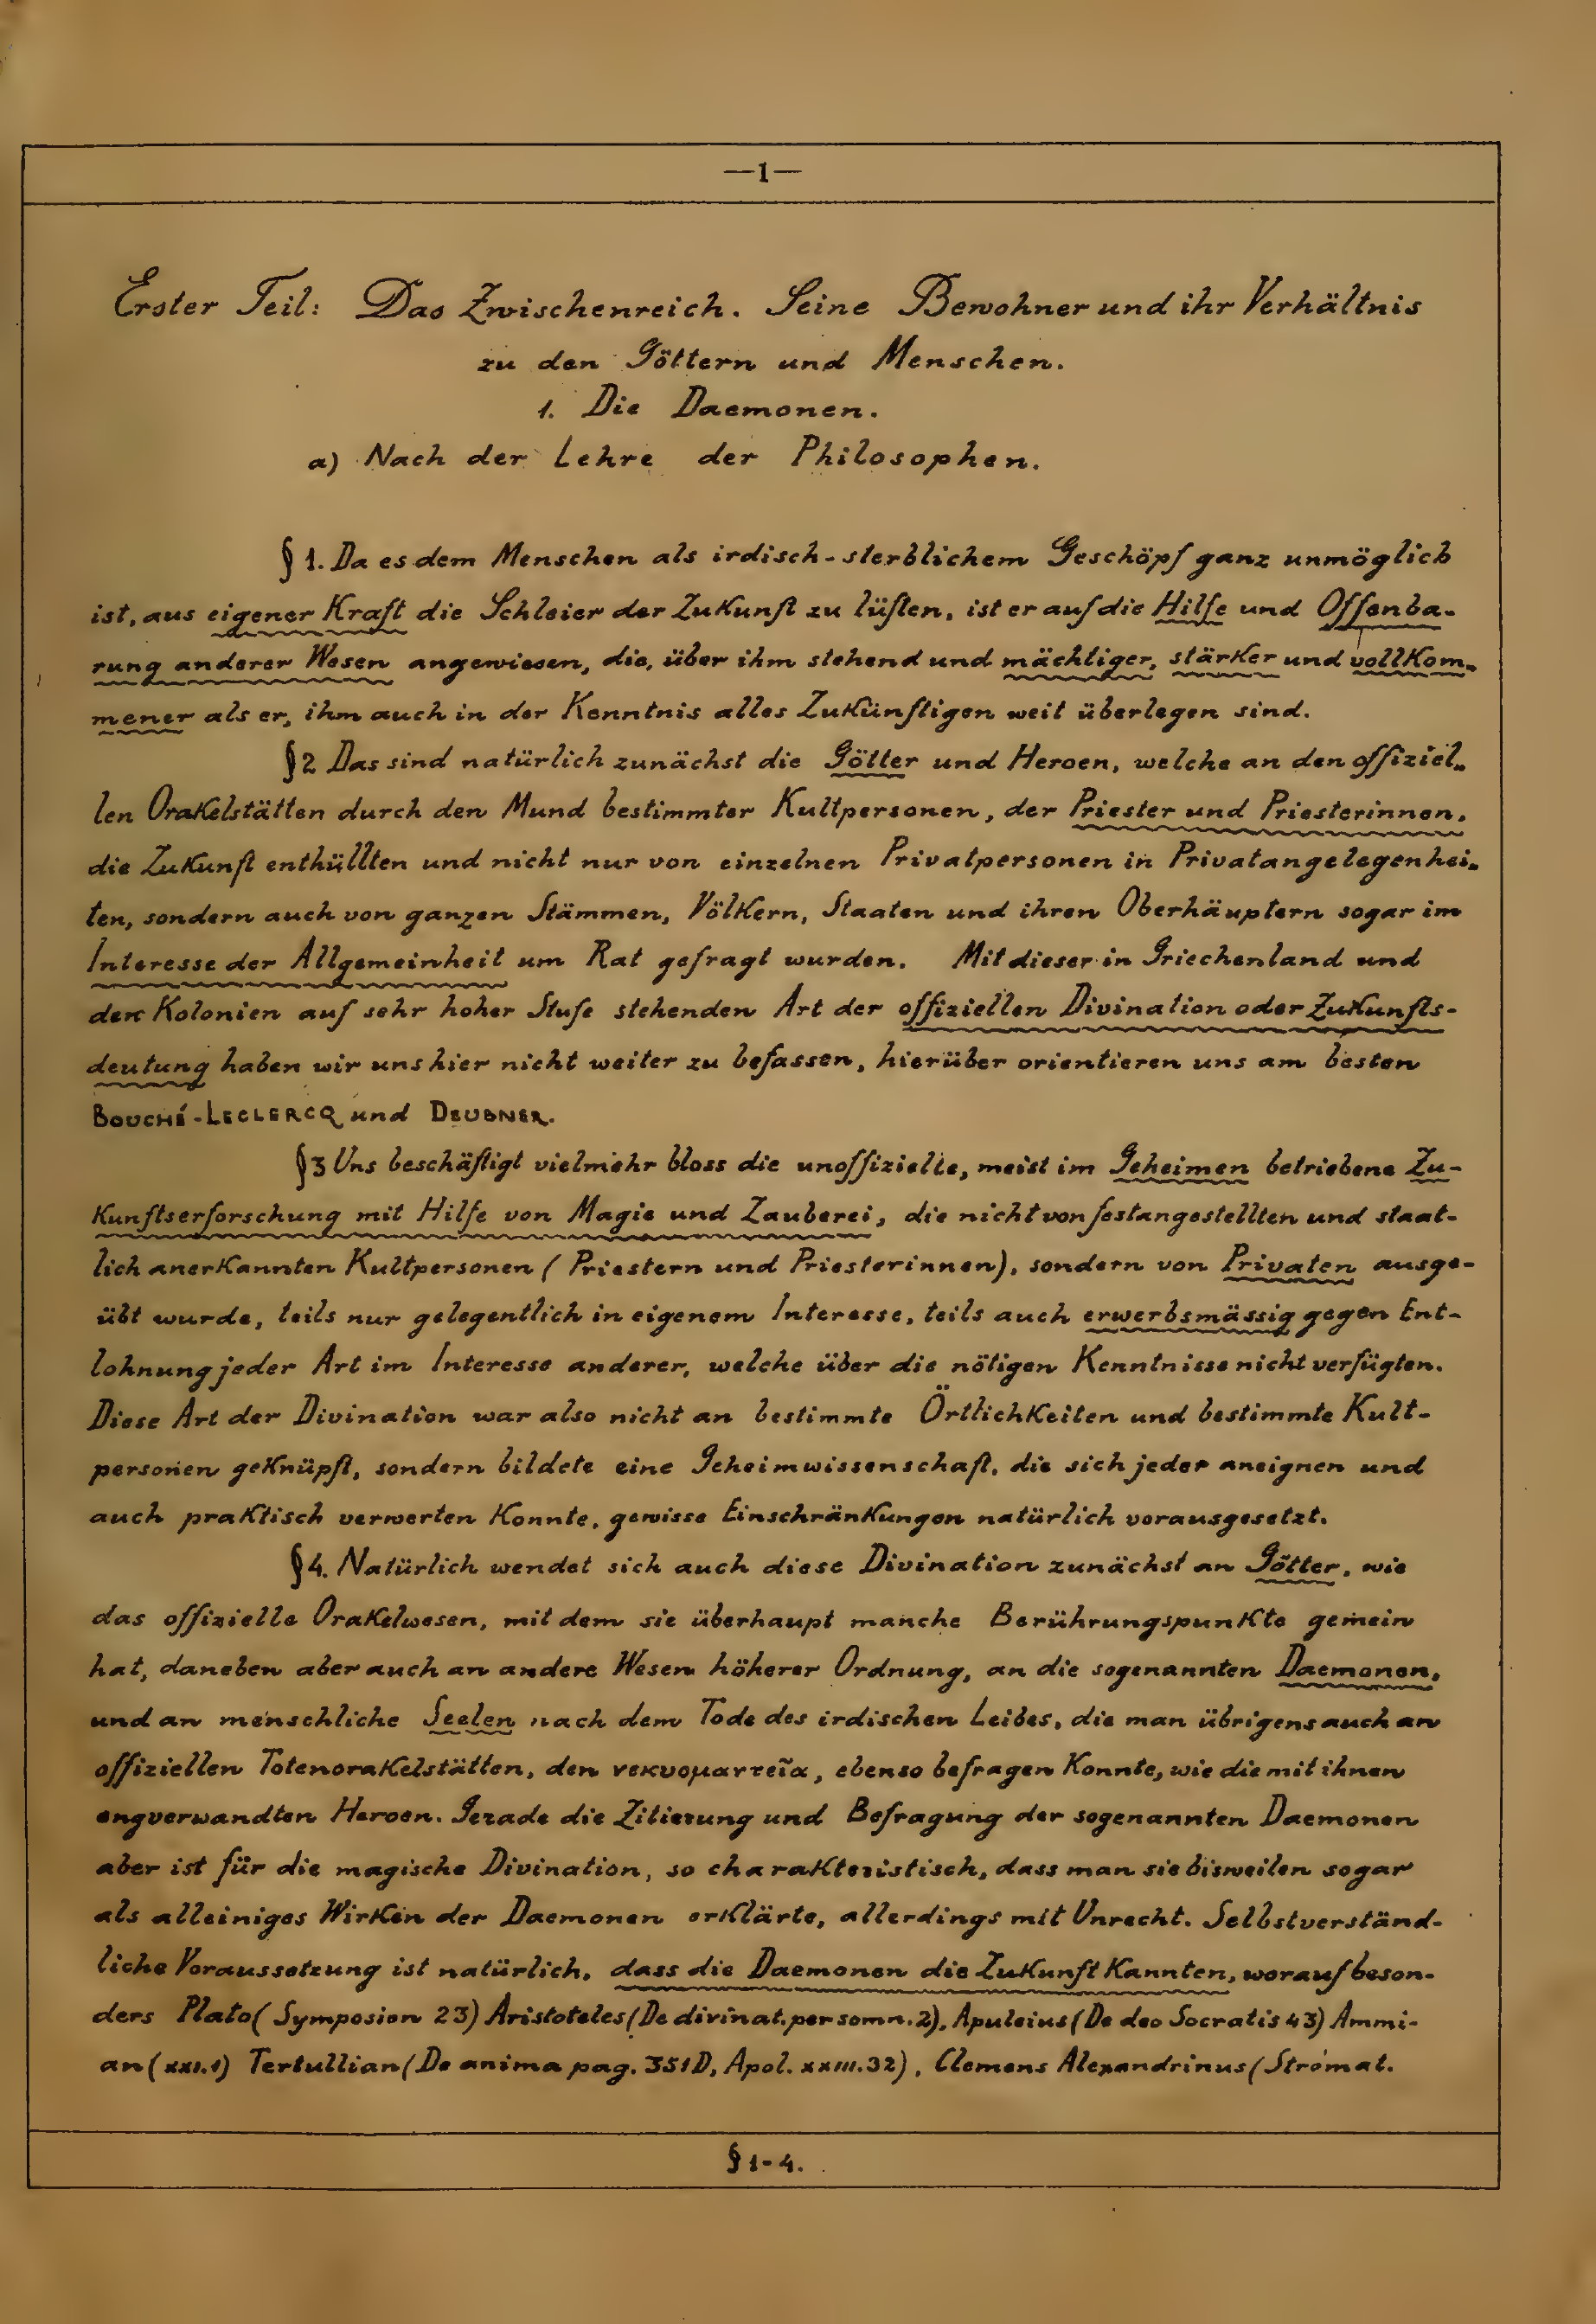 —1—
Erster Teil: Das Zwischenreich. Seine Bewohner und ihr Verhältnis
zu den Göttern und Menschen.
1. Die Daemonen.
a) Nach der Lehre der Philosophen.
§ 1. Da es dem Menschen als irdisch-sterblichem Geschöpf ganz unmöglich
ist, aus eigener Kraft die Schleier der Zukunft zu lüften, ist er auf die Hilfe und Offenba-
rung anderer Wesen angewiesen, die, über ihm stehend und mächtiger, stärker und vollkom-
mener als er, ihm auch in der Kenntnis alles Zukünftigen weit überlegen sind.
§2 Das sind natürlich zunächst die Götter und Heroen, welche an den offiziel-
len Orakelstätten durch den Mund bestimmter Kultpersonen, der Priester und Priesterinnen,
die Zukunft enthüllten und nicht nur von einzelnen Privatpersonen in Privatangelegenhei-
ten, sondern auch von ganzen Stämmen, Völkern, Staaten und ihren Oberhäuptern sogar im
Interesse der Allgemeinheit um Rat gefragt wurden. Mit dieser in Griechenland und
den Kolonien auf sehr hoher Stufe stehenden Art der offiziellen Divination oder Zukunfts-
deutung haben wir uns hier nicht weiter zu befassen, hierüber orientieren uns am besten
BOUCHÉ-LECLERCQ und DEUBNER.
§3 Uns beschäftigt vielmehr bloss die unoffizielle, meist im Geheimen betriebene Zu-
kunftserforschung mit Hilfe von Magie und Zauberei, die nicht von festangestellten und staat-
lich anerkannten Kultpersonen (Priestern und Priesterinnen), sondern von Privaten ausge-
übt wurde, teils nur gelegentlich in eigenem Interesse, teils auch erwerbsmässig gegen Ent-
lohnung jeder Art im Interesse anderer, welche über die nötigen Kenntnisse nicht verfügten.
Diese Art der Divination war also nicht an bestimmte Örtlichkeiten und bestimmte Kult-
personen geknüpft, sondern bildete eine Geheimwissenschaft, die sich jeder aneignen und
auch praktisch verwerten konnte, gewisse Einschränkungen natürlich vorausgesetzt.
§4. Natürlich wendet sich auch diese Divination zunächst an Götter, wie
das offizielle Orakelwesen, mit dem sie überhaupt manche Berührungspunkte gemein
hat, daneben aber auch an andere Wesen höherer Ordnung, an die sogenannten Daemonen,
und an menschliche Seelen nach dem Tode des irdischen Leibes, die man übrigens auch an
offiziellen Totenorakelstätten, den νεκυομαντεῖα, ebenso befragen konnte, wie die mit ihnen
engverwandten Heroen. Gerade die Zitierung und Befragung der sogenannten Daemonen
aber ist für die magische Divination, so charakteristisch, dass man sie bisweilen sogar
als alleiniges Wirken der Daemonen erklärte, allerdings mit Unrecht. Selbstverständ-
liche Voraussetzung ist natürlich, dass die Daemonen die Zukunft kannten, worauf beson-
ders Plato (Symposion 23) Aristoteles (De divinat. per somn. 2), Apuleius (De deo Socratis 43) Ammi-
an (XXI.1) Tertullian (De anima pag. 351D, Apol. XXIII.32), Clemens Alexandrinus (Stromat.
§ 1-4.